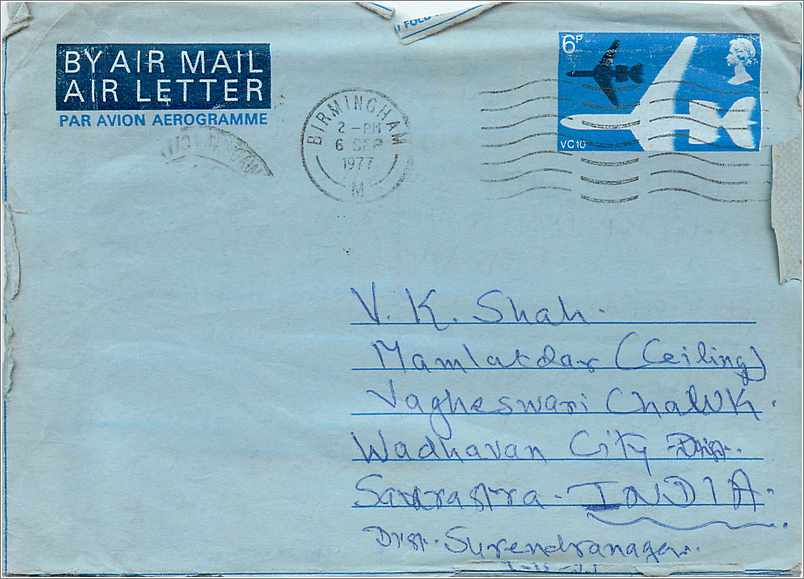 II FOLD
BY AIR MAIL
AIR LETTER
PAR AVION AEROGRAMME
BIRMINGHAM
2-PM
6 SEP
1977
M
6P
VC10
V. K. Shah.
Mamlatdar (Ceiling)
Vagheswari Chawk.
Wadhavan City Dist.
Saurastra. INDIA.
Dist. Surendranagar.